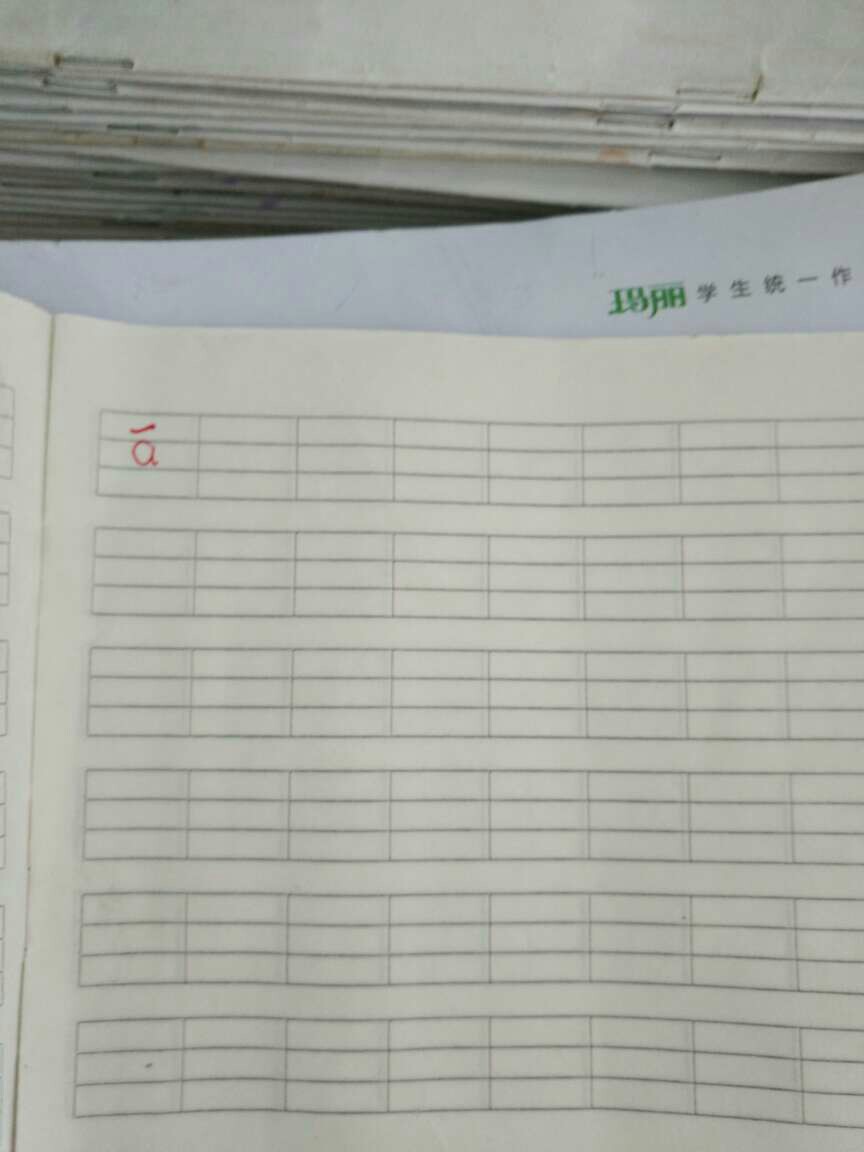 玛丽 学生统一作
ā